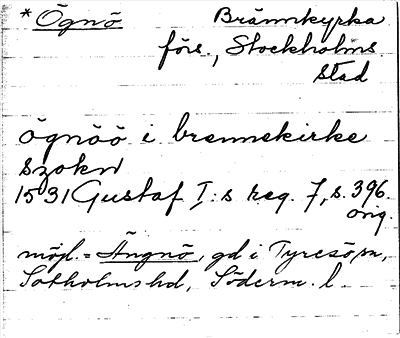 * Ögnö Brännkyrka
förs., Stockholms
stad
ögnöö i brennekirke
szokn
1531 Gustaf I:s reg. 7, s. 396.
orig.
möjl. = Ängnö, gd i Tyresö sn,
Sotholms hd, Söderm. l.